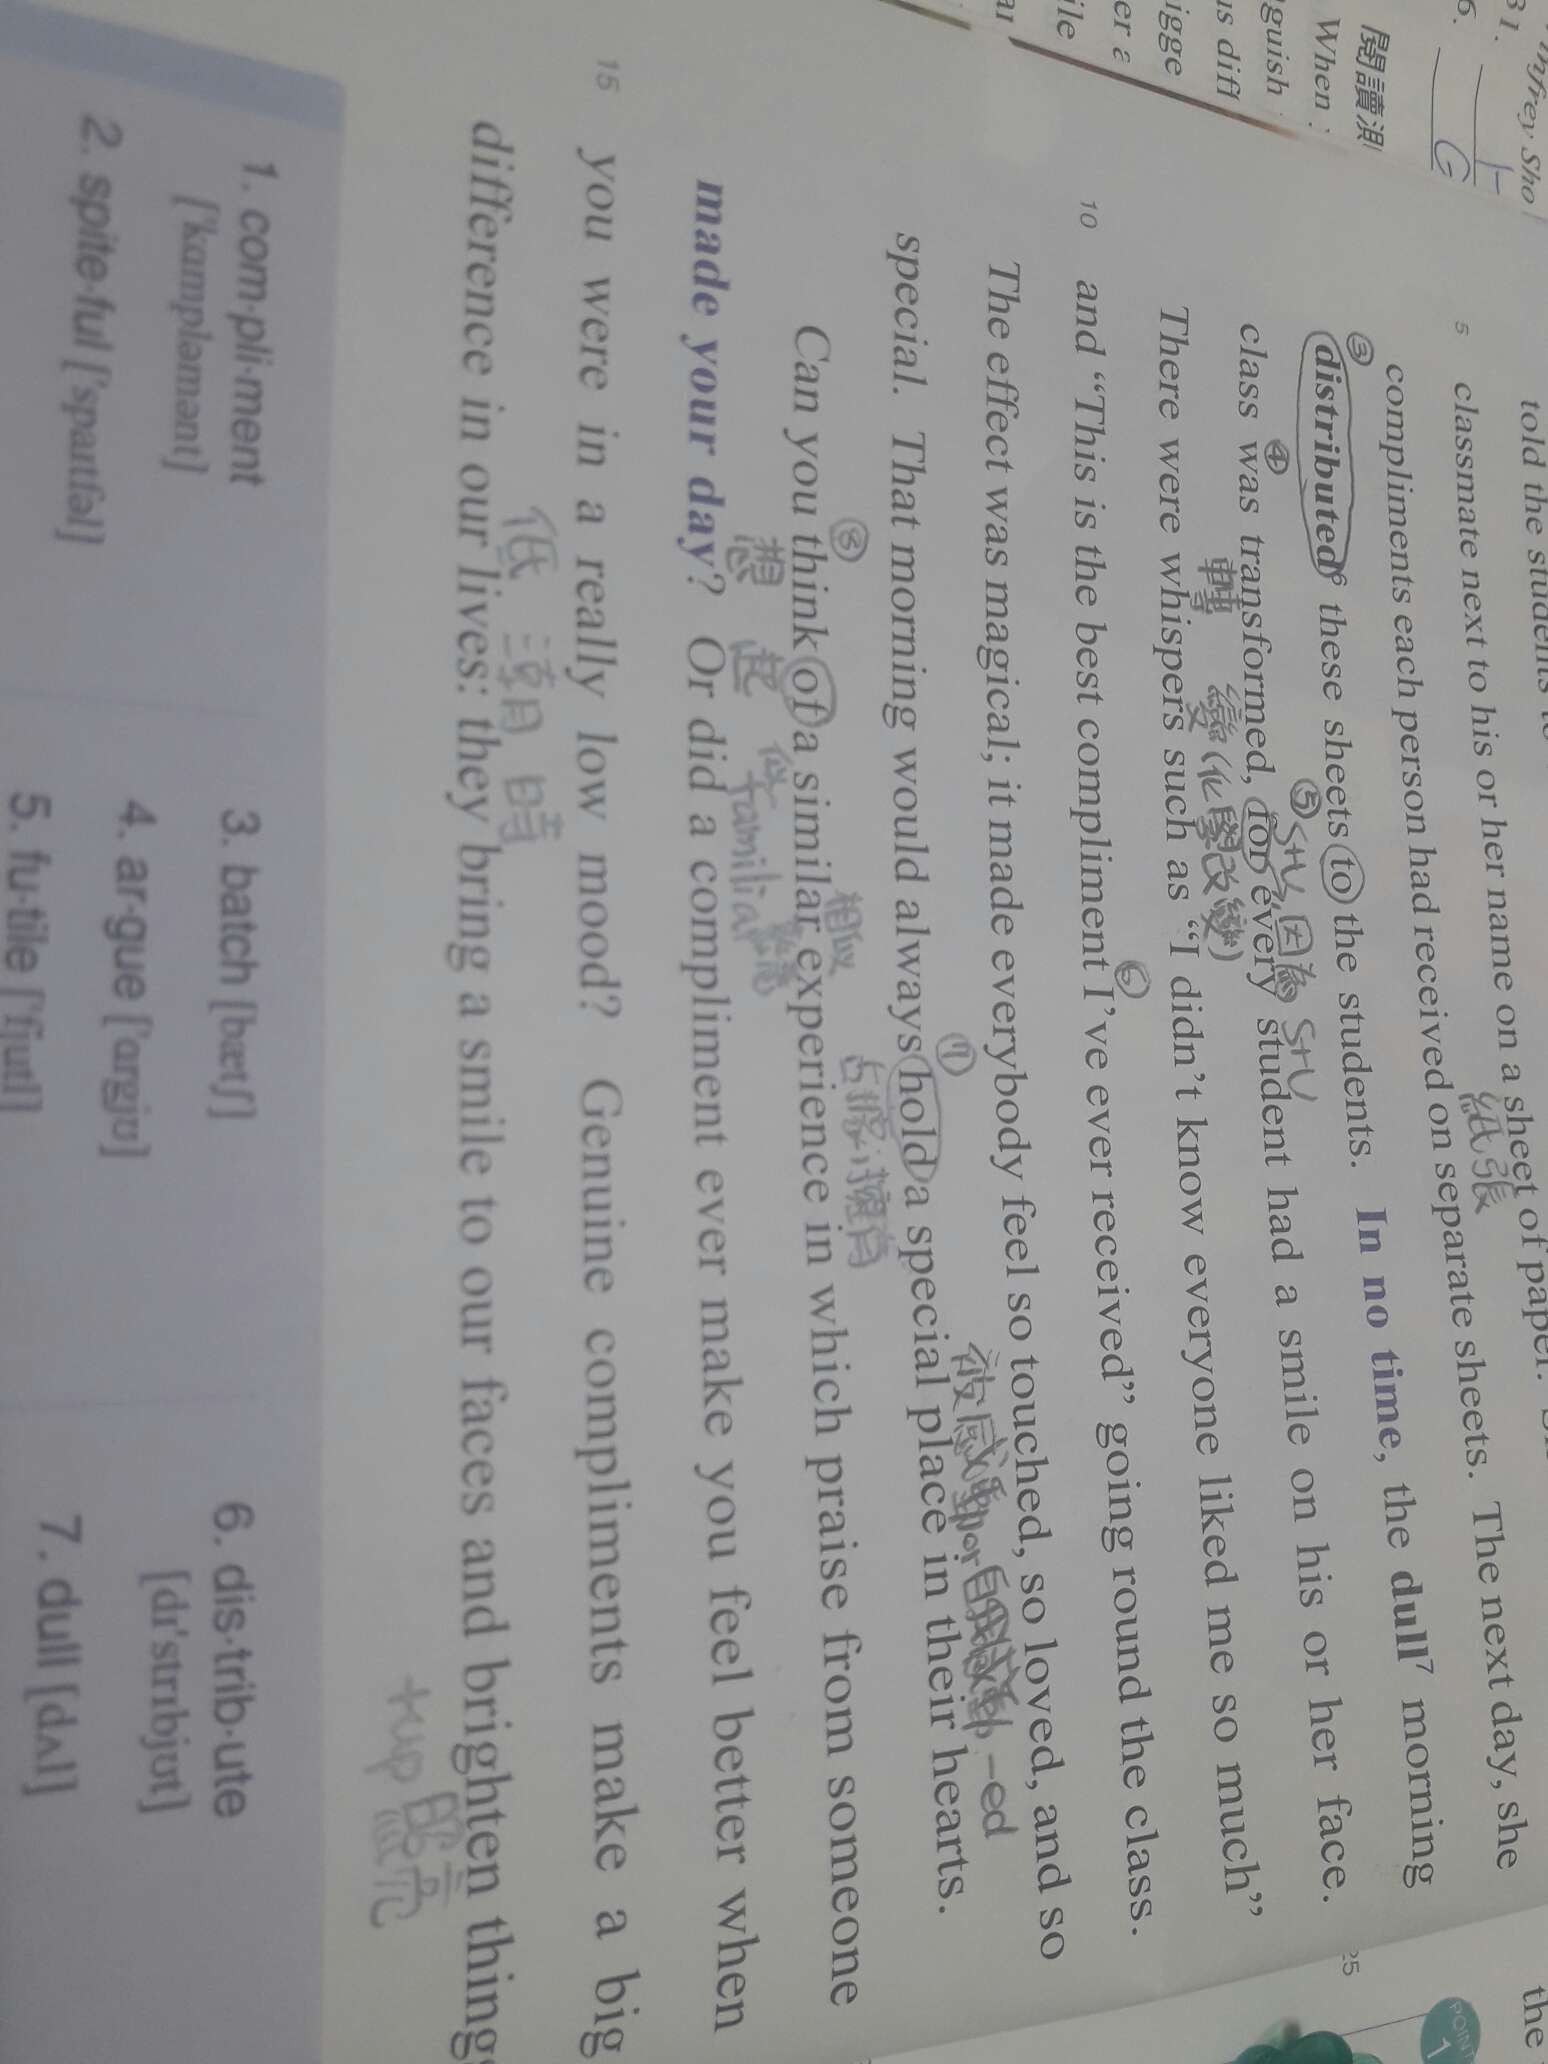 told the students
classmate next to his or her name on a sheet of paper.
紙張
compliments each person had received on separate sheets. The next day, she
③
distributed⁶ these sheets to the students. In no time, the dull⁷ morning
④ ⑤ S+V, 因為 S+V
class was transformed, for every student had a smile on his or her face.
轉變(化學改變)
There were whispers such as “I didn’t know everyone liked me so much”
⑥
10 and “This is the best compliment I’ve ever received” going round the class.
The effect was magical; it made everybody feel so touched, so loved, and so
⑦ 被感動 or -ed
special. That morning would always hold a special place in their hearts.
⑧ 相似 占據;擁有
Can you think of a similar experience in which praise from someone
想起 familiar
made your day? Or did a compliment ever make you feel better when
15 you were in a really low mood? Genuine compliments make a big
低潮時
difference in our lives: they bring a smile to our faces and brighten things
+up 照亮
1. com·pli·ment
[ˋkɑmpləmənt]
2. spite·ful [ˋspaɪtfəl]
3. batch [bætʃ]
4. ar·gue [ˋɑrgjʊ]
5. fu·tile [ˋfjutl]
6. dis·trib·ute
[dɪˋstrɪbjut]
7. dull [dʌl]
31.
6. G
閱讀測
When
guish
is diff
igge
er a
ile
25
the
POINT
1